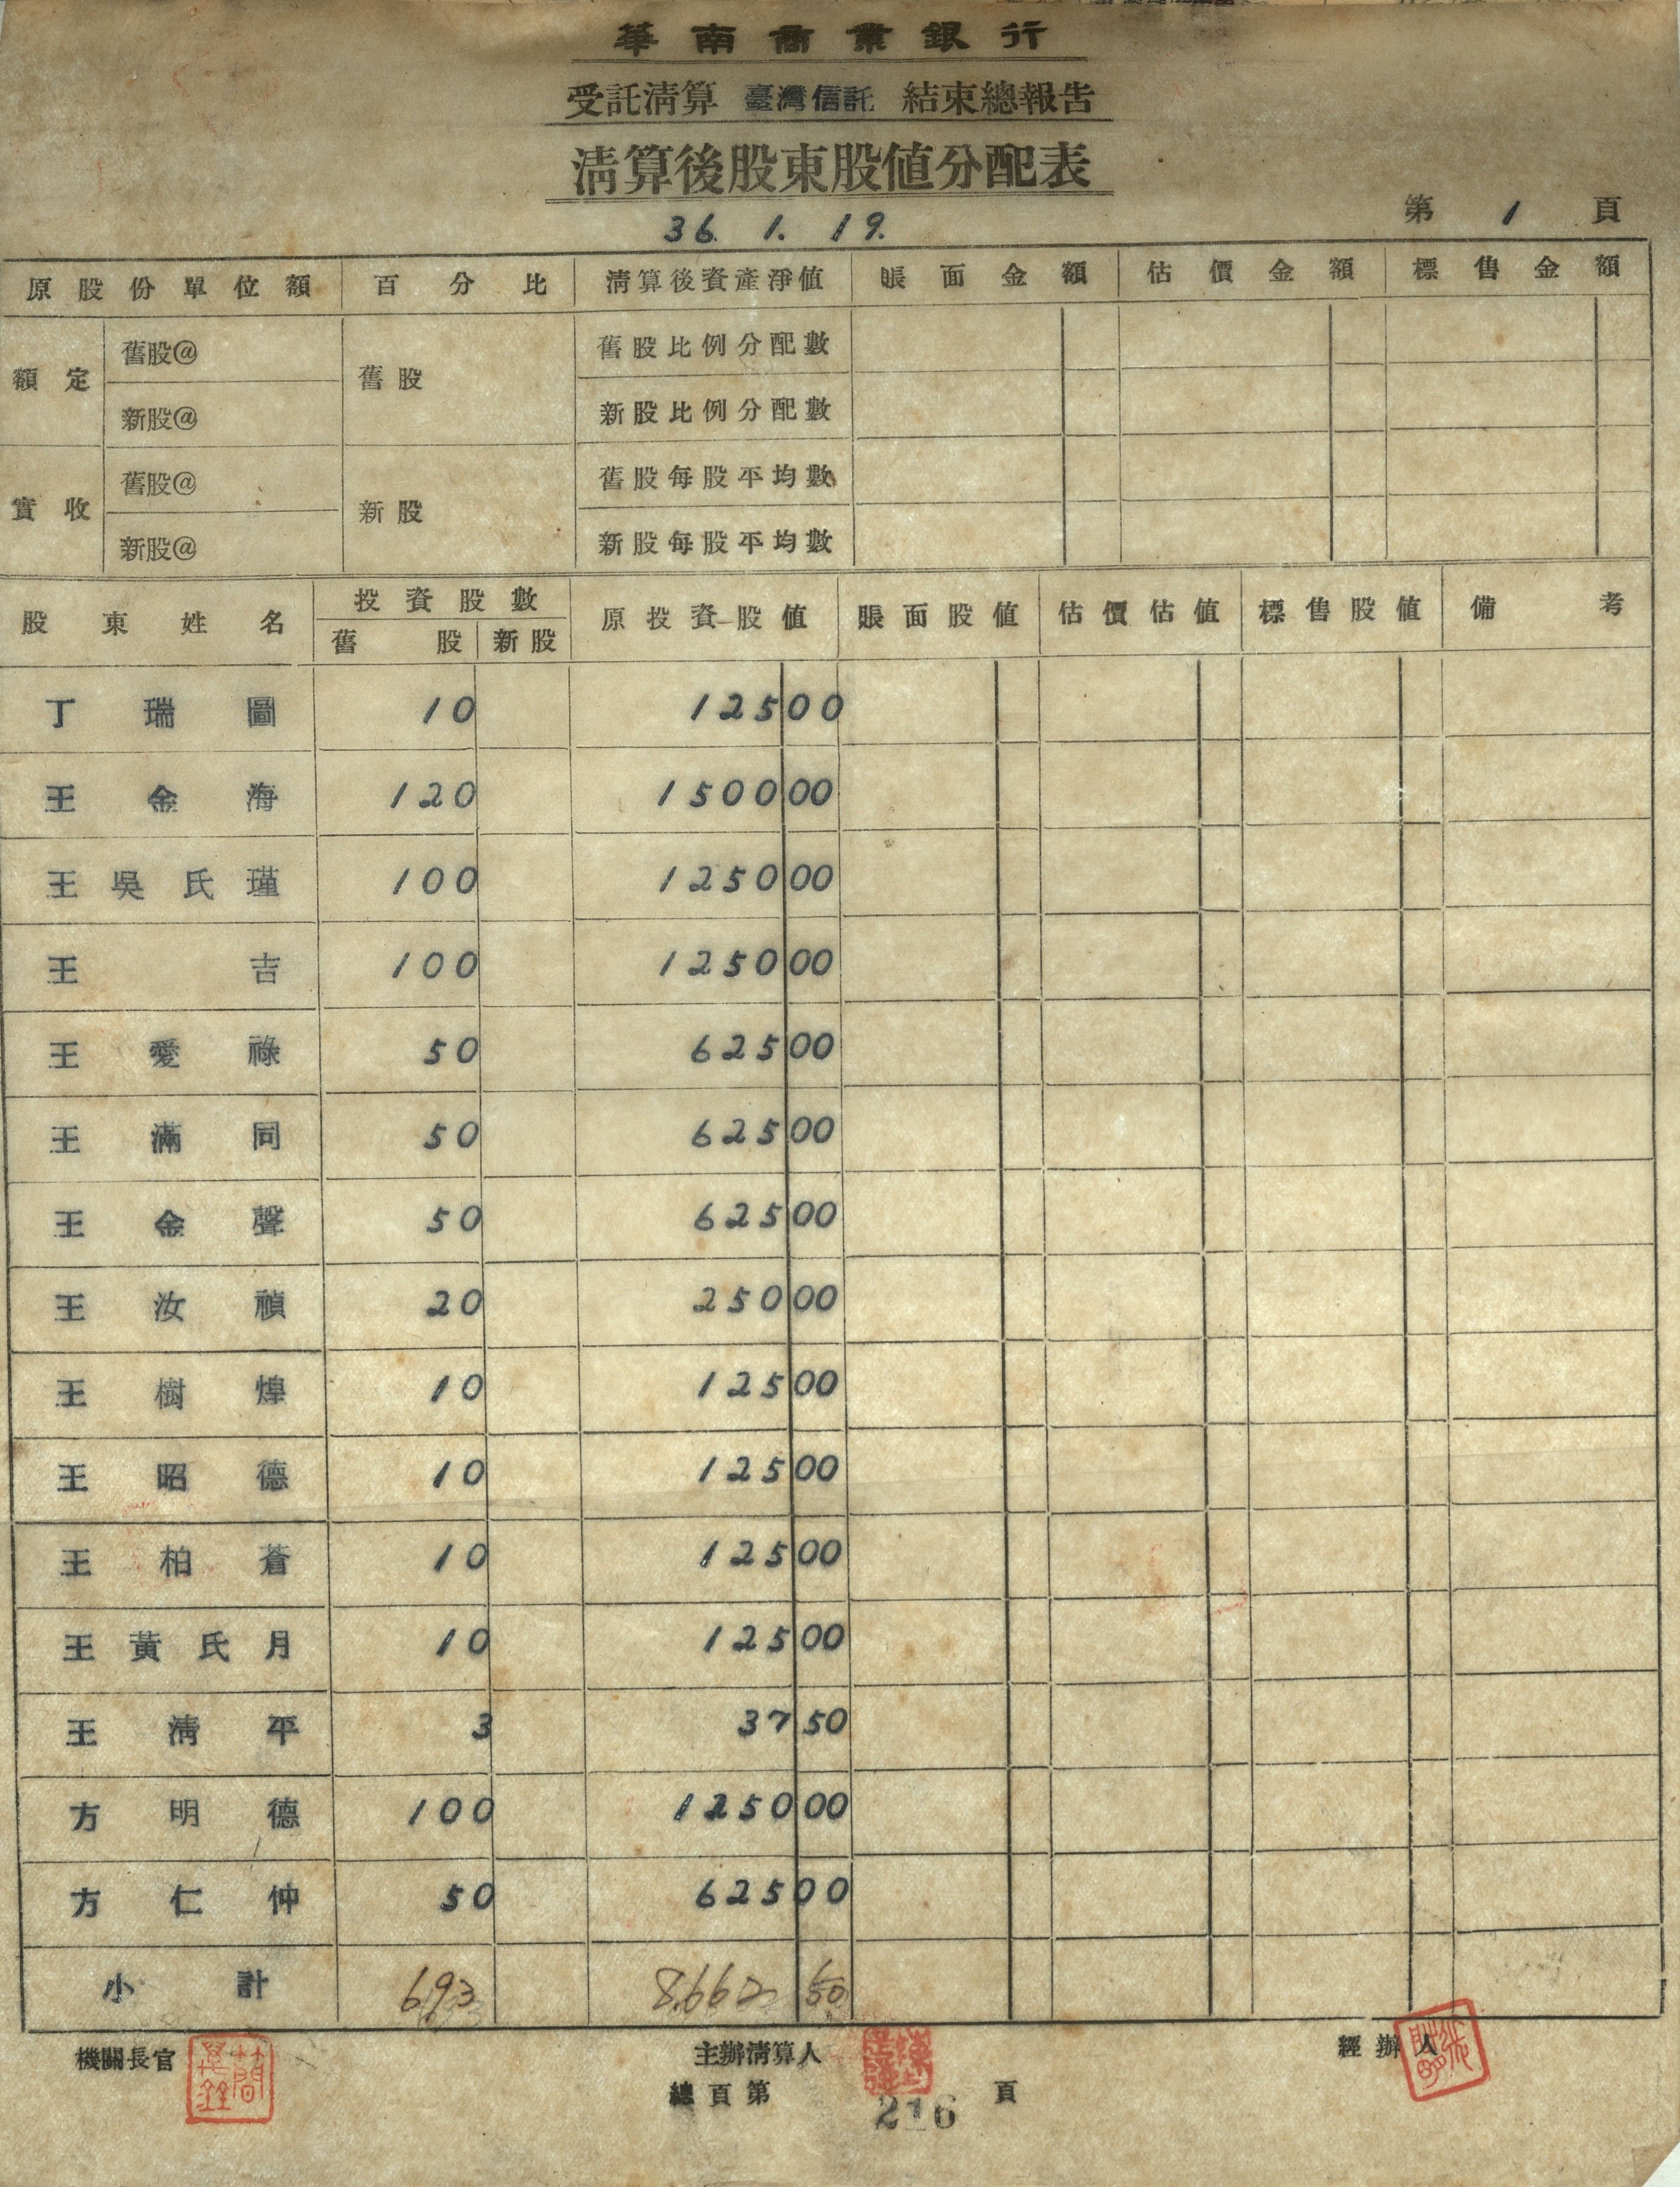 華南商業銀行
受託清算 臺灣信託 結束總報告
清算後股東股值分配表
36. 1. 19.
第 1 頁
原股份單位額 百分比 清算後資產淨值 賬面金額 估價金額 標售金額
額定 舊股@ 舊股 舊股比例分配數
新股@ 新股比例分配數
實收 舊股@ 新股 舊股每股平均數
新股@ 新股每股平均數
股東姓名 投資股數 原投資股值 賬面股值 估價估值 標售股值 備考
舊股 新股
丁瑞圖 10 125 00
王金海 120 1500 00
王吳氏瑾 100 1250 00
王吉 100 1250 00
王愛祿 50 625 00
王滿同 50 625 00
王金聲 50 625 00
王汝禎 20 250 00
王樹煌 10 125 00
王昭德 10 125 00
王柏蒼 10 125 00
王黃氏月 10 125 00
王清平 3 37 50
方明德 100 1250 00
方仁仲 50 625 00
小計 693 8,662 50
機關長官 主辦清算人 經辦人
總頁第 216 頁